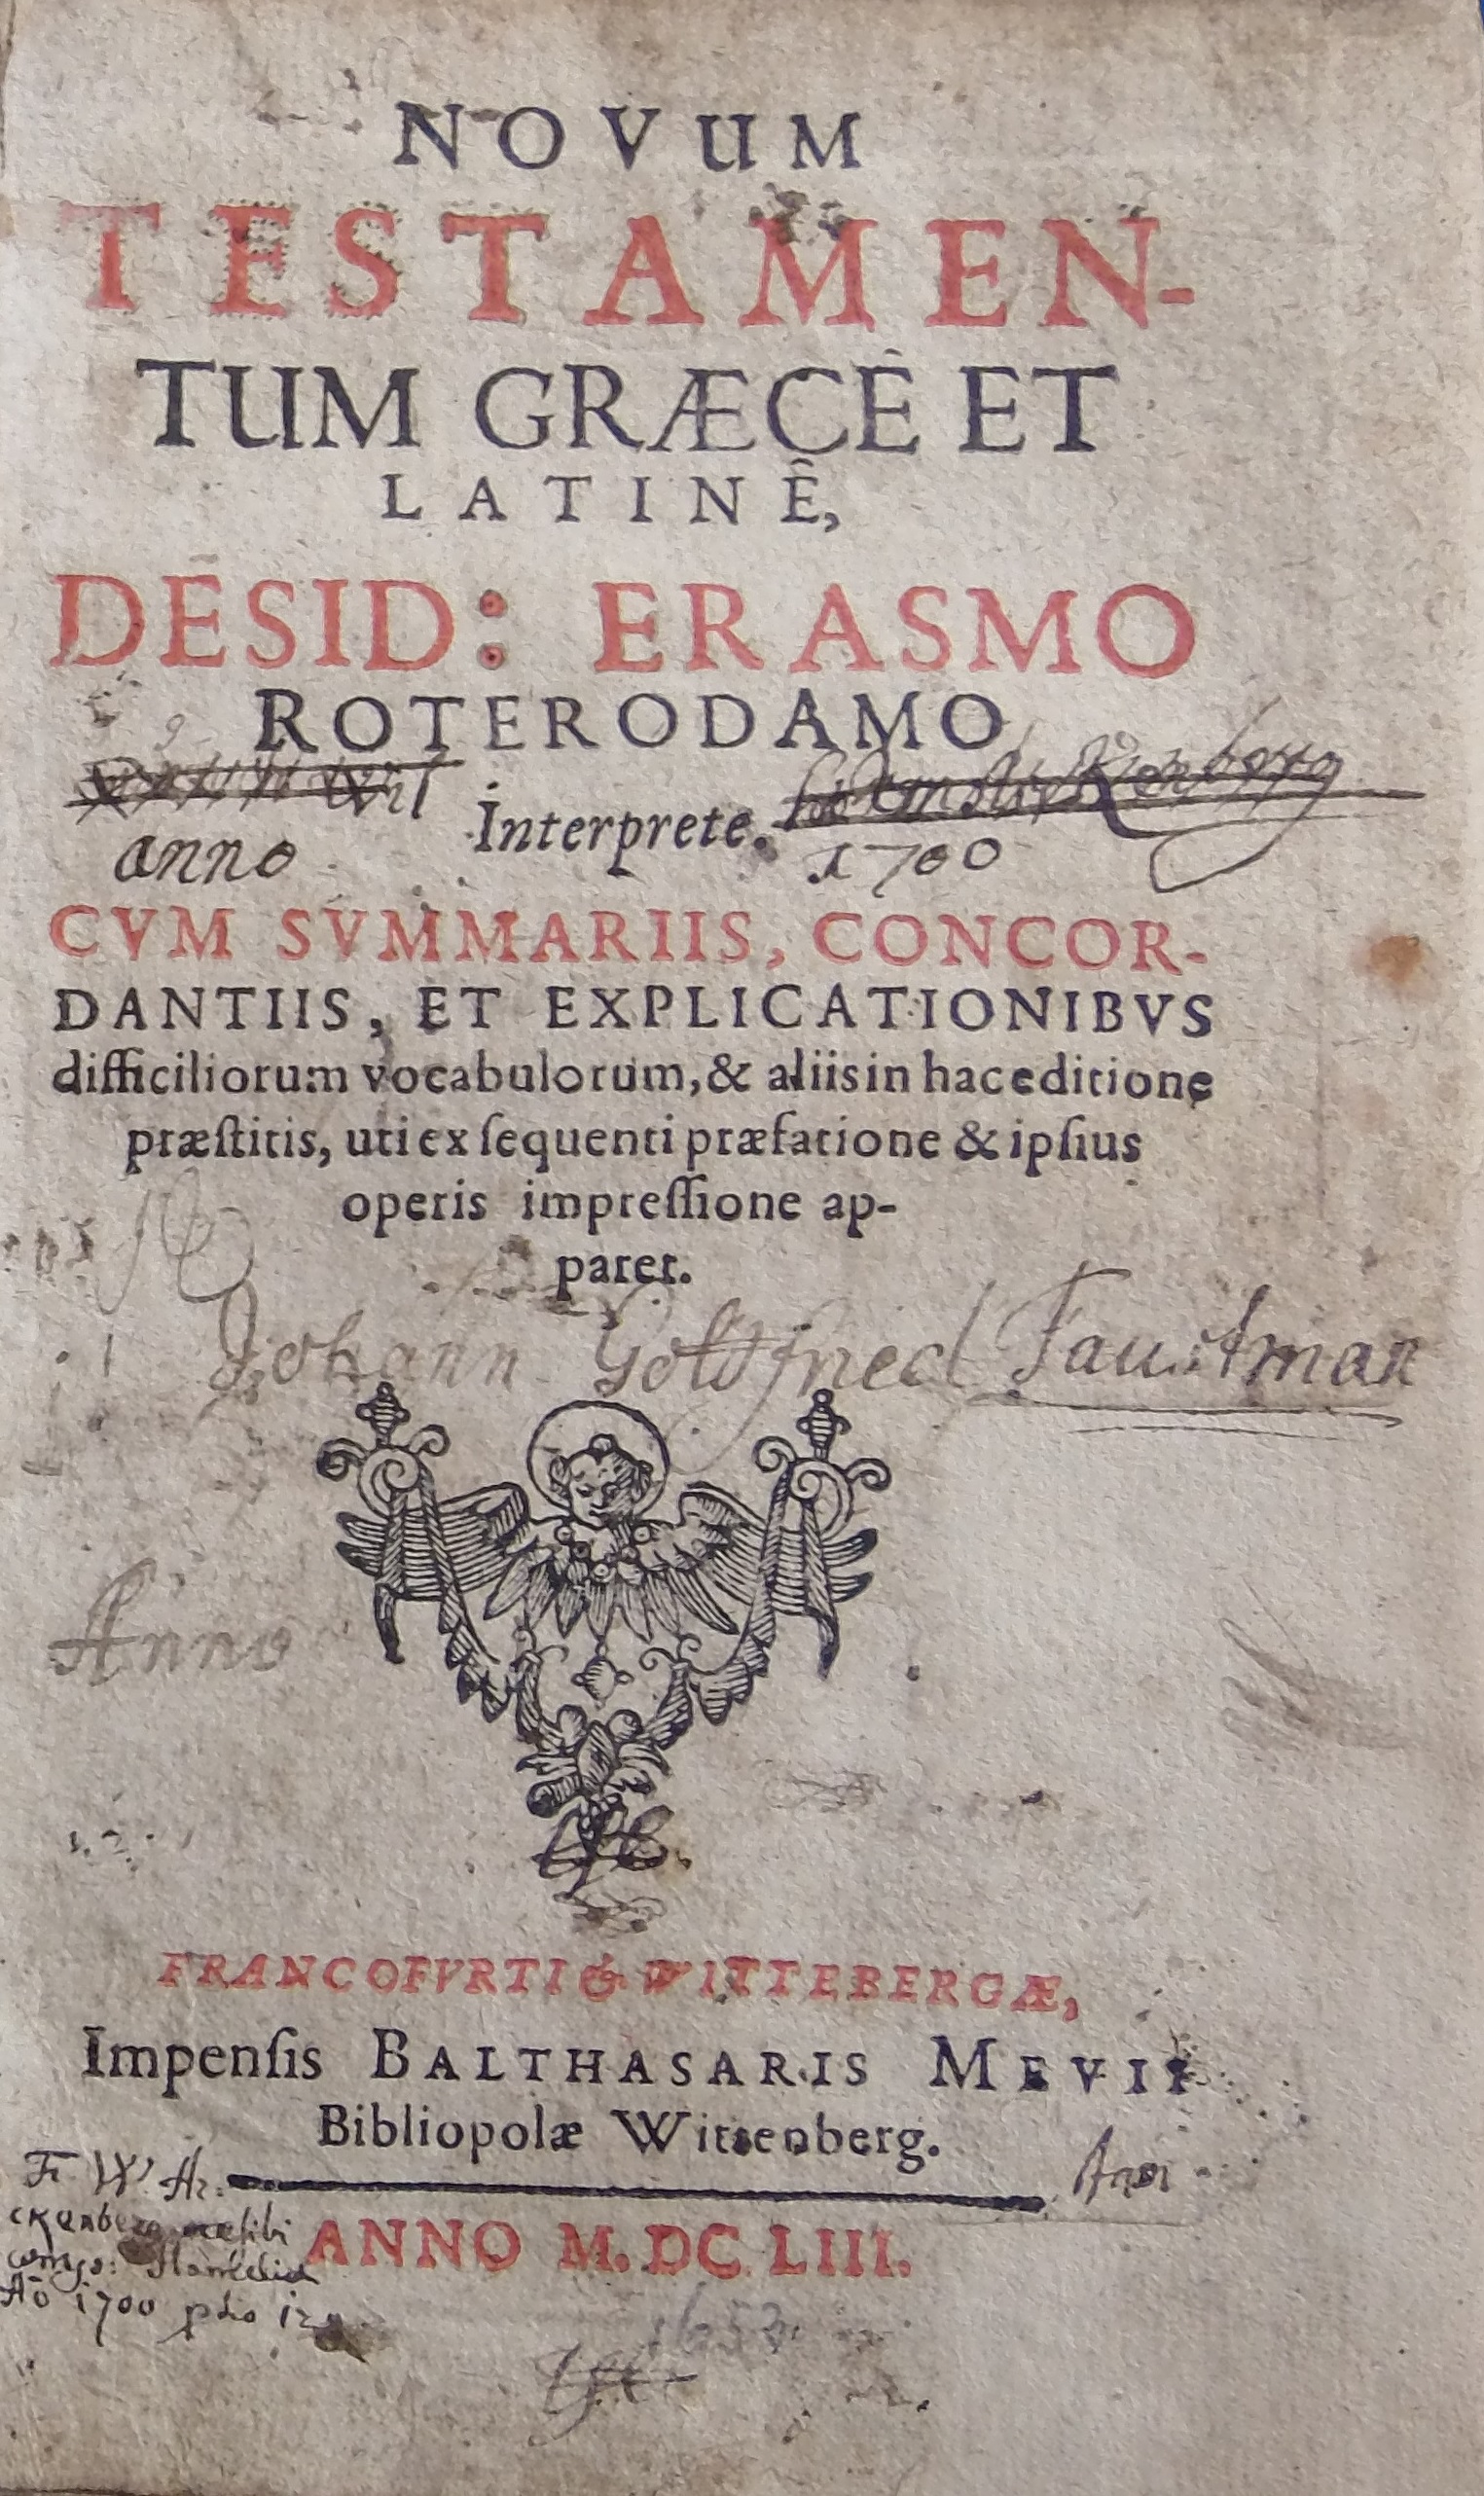 NOVUM
TESTAMEN-
TUM GRÆCÈ ET
LATINÊ,
DESID: ERASMO
ROTERODAMO
Interprete.
anno 1700
CVM SVMMARIIS, CONCOR-
DANTIIS, ET EXPLICATIONIBVS
difficiliorum vocabulorum, & aliis in hac editione
præſtitis, uti ex ſequenti præfatione & ipſius
operis impreſſione ap-
paret.
Johann Gottfried Faustman
Anno
FRANCOFVRTI & WITTEBERGÆ,
Impenſis BALTHASARIS MEVII
Bibliopolæ Wittenberg.
F. W. Ar.
ckenberg
ANNO M. DC LIII.
Aō 1700
1653